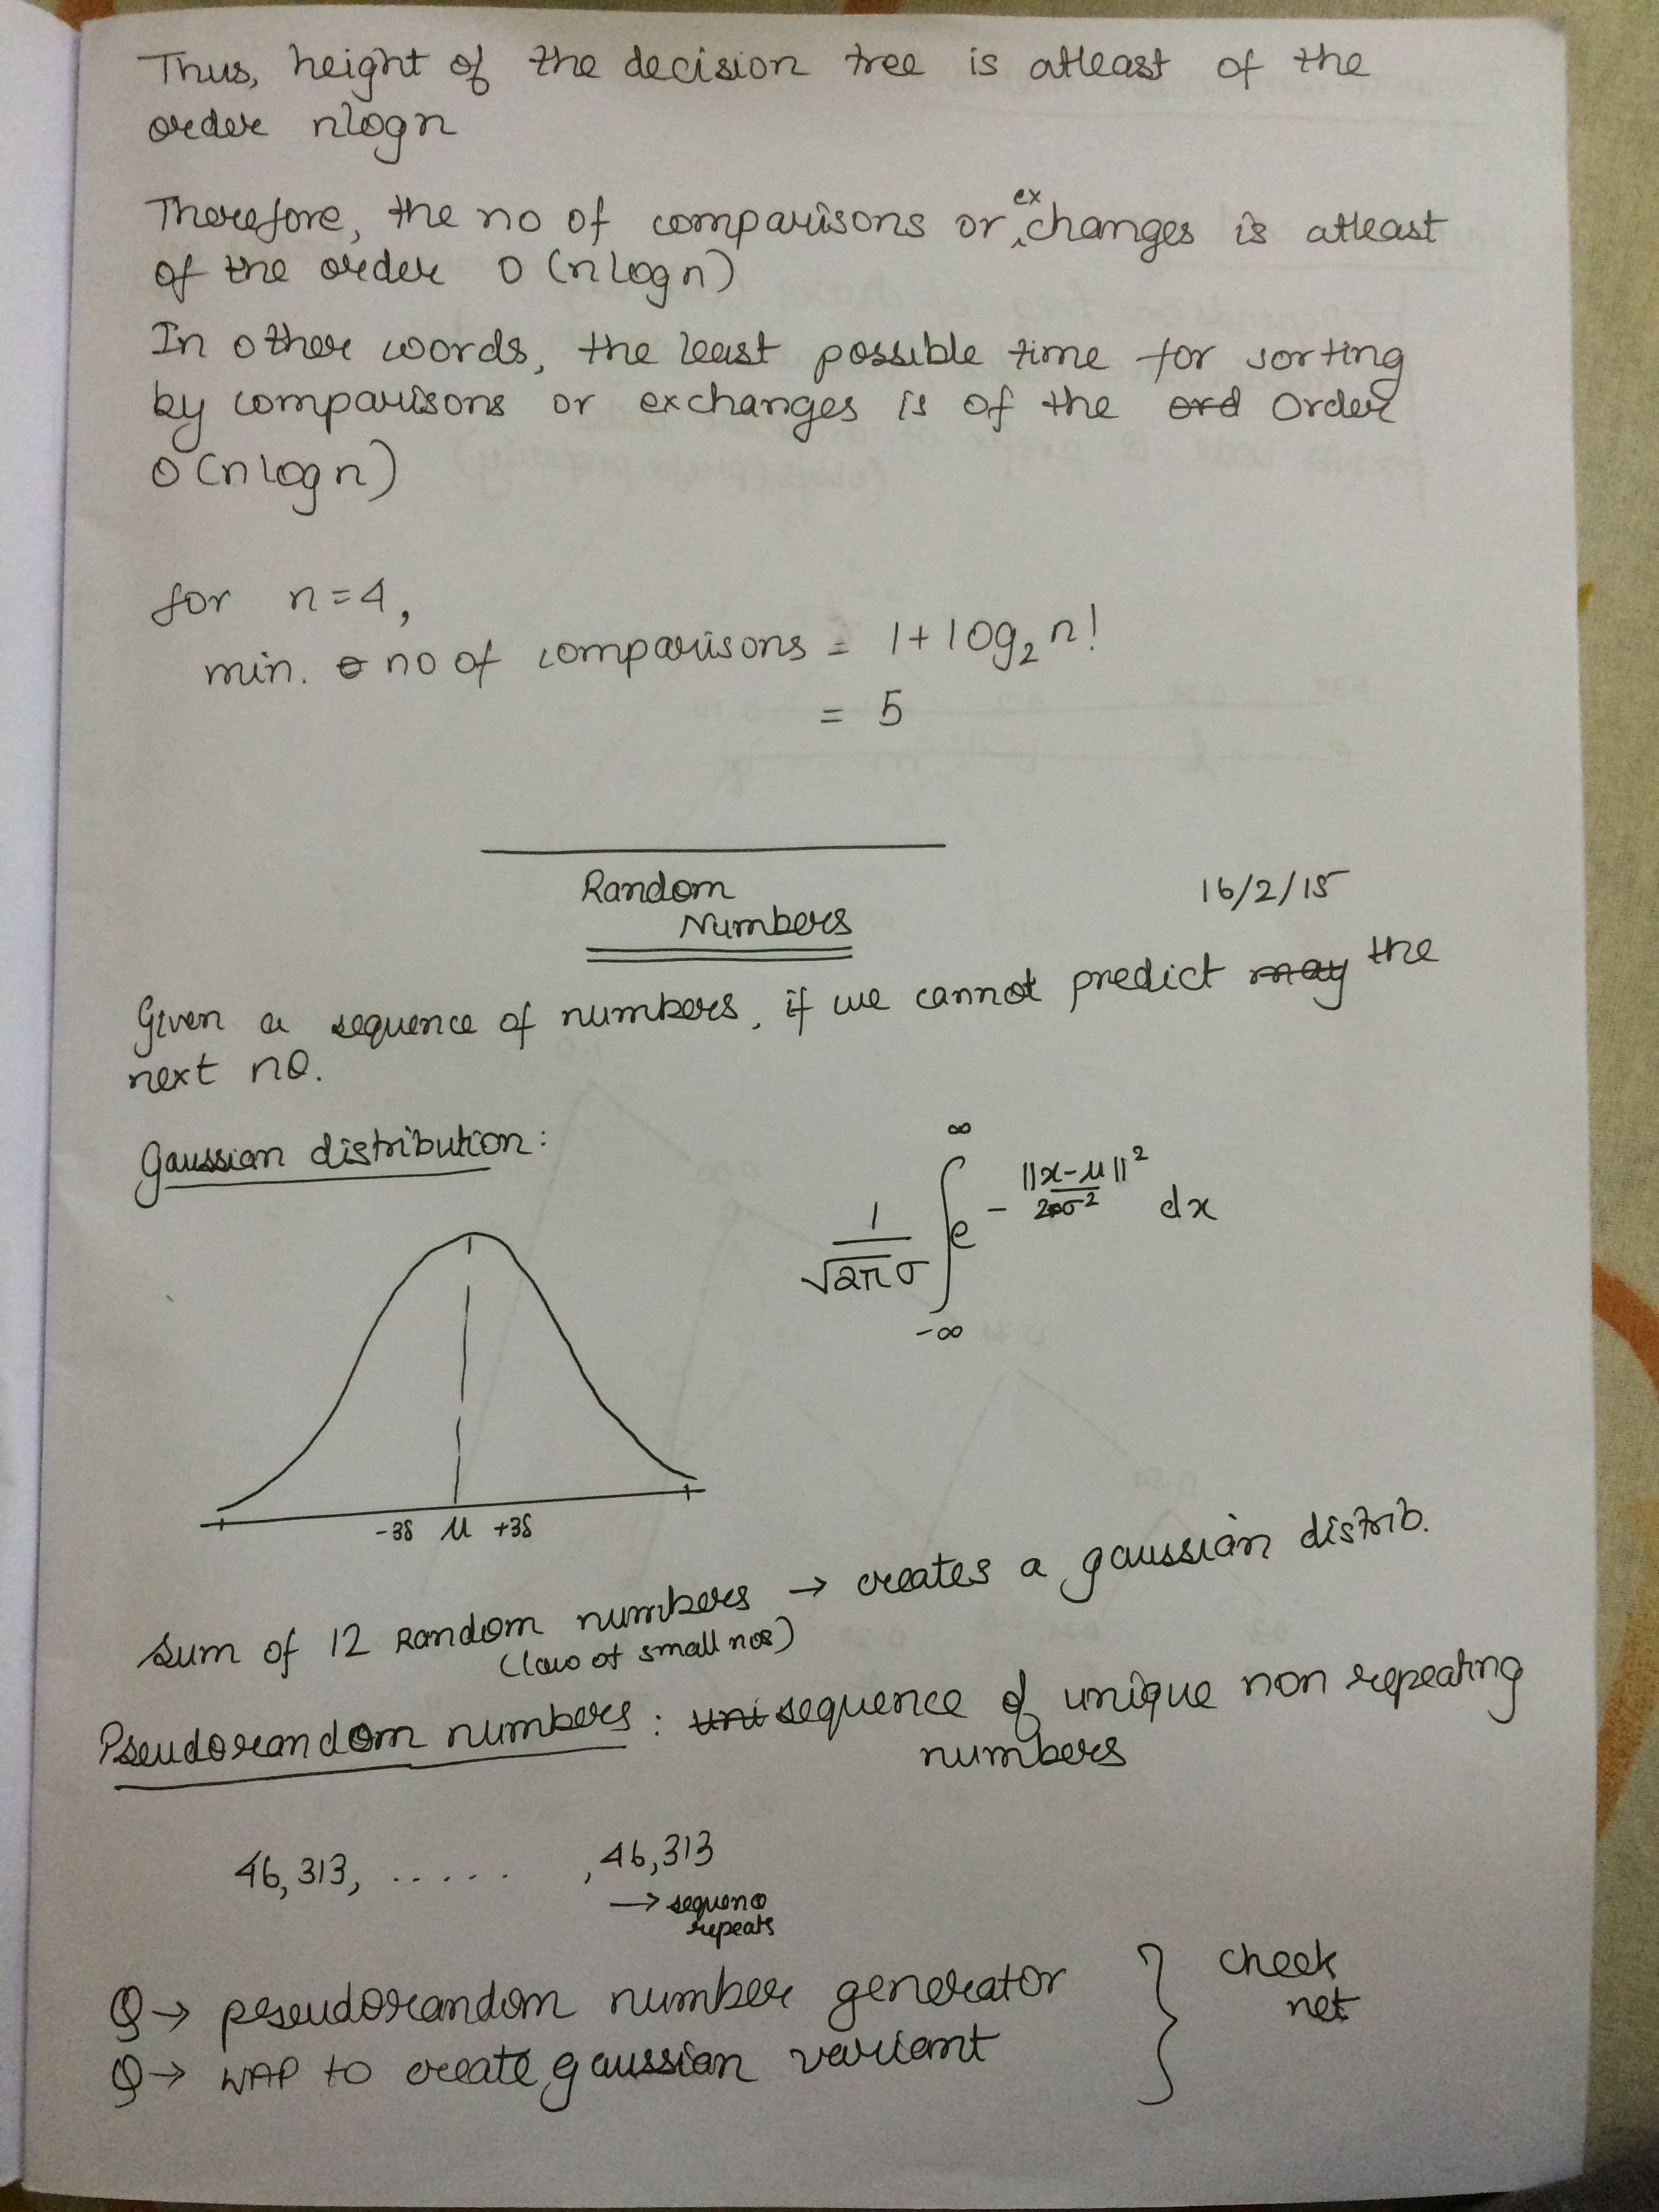 Thus, height of the decision tree is atleast of the
order nlogn
Therefore, the no of comparisons or exchanges is atleast
of the order O(nlogn)
In other words, the least possible time for sorting
by comparisons or exchanges is of the ord Order
O(nlogn)
for n=4,
min. no of comparisons = 1+log₂n!
= 5
Random
Numbers
16/2/15
Given a sequence of numbers, if we cannot predict may the
next no.
Gaussian distribution:
1/√2πσ ∫_{-∞}^{∞} e^{-||x-μ||²/2σ²} dx
-3δ μ +3δ
Sum of 12 Random numbers → creates a gaussian distrib.
(law of small nos)
Pseudorandom numbers: uni sequence of unique non repeating
numbers
46,313, ..... ,46,313
→ sequence
repeats
Q→ pseudorandom number generator
Q→ WAP to create gaussian variant
check
net